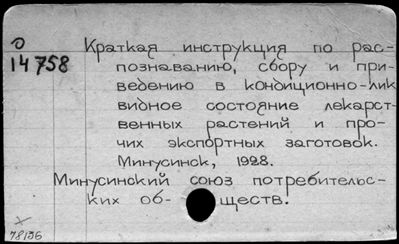 О
14758
Краткая инструкция по рас-
познаванию, сбору и при-
ведению в кондиционно-лик
видное состояние лекарст-
венных растений и про-
чих экспортных заготовок.
Минусинск, 1928.
Минусинский союз потребительс-
ких об- ществ.
х
78136